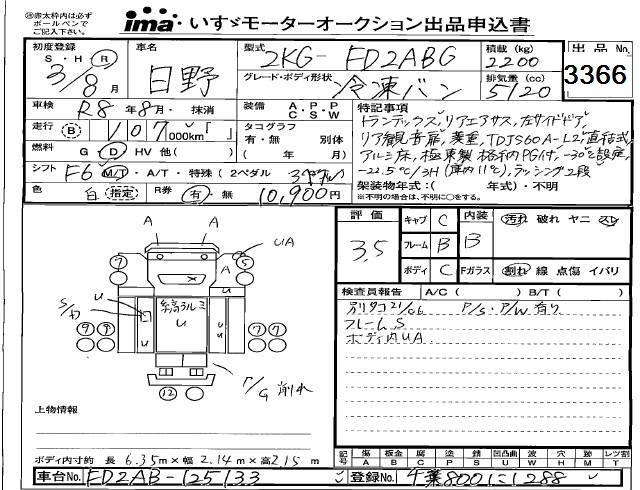 ima いすゞモーターオークション出品申込書
㊟赤太枠内は必ず
ボールペンで
ご記入ください。
初度登録 S・H・R 3/8月
車名 日野
型式 2KG-FD2ABG
積載(kg) 2200
出品No. 3366
グレード・ボディ形状 冷凍バン
排気量(cc) 5120
車検 R8年8月・抹消
装備 A・P・P C・S・W
特記事項
トランテックス,リアエアサス,左サイドドア,
リア観音扉,菱重,TDJS60A-L2,直結式
アルミ床,極東製格納PG付,-30℃設定,
-22.5℃/3H(庫内11℃),ラッシング2段
走行 Ⓑ 107,000km
タコグラフ 有・無 別体
(年 月)
燃料 G・D・HV 他( )
シフト F6 M/T・A/T・特殊(2ペダル
色 白 指定
R券 有・無 10,900円
架装物年式:( 年式)・不明
※不明の場合は、不明に〇をする。
評価 3.5
キャブ C 内装 B 汚れ 破れ ヤニ スレ
フレーム B
ボディ C Fガラス 割れ 線 点傷 イバリ
検査員報告 A/C( ) B/T( )
別タコ21/06 P/S・P/W有り
フレームS
ボディ内UA
A A
UA
⑦ ⑤
A
S/カ U U
U U
⑨⑨ ⑦⑦
⑫
P/G 削れ
上物情報
ボディ内寸約 長 6.35m×幅 2.14m×高 2.15m
記号 傷A 板金B 腐C 塗P 錆S 凹凸曲U 波W 穴H 跡M レツ割T
車台No. FD2AB-125133
登録No. 千葉800い1288